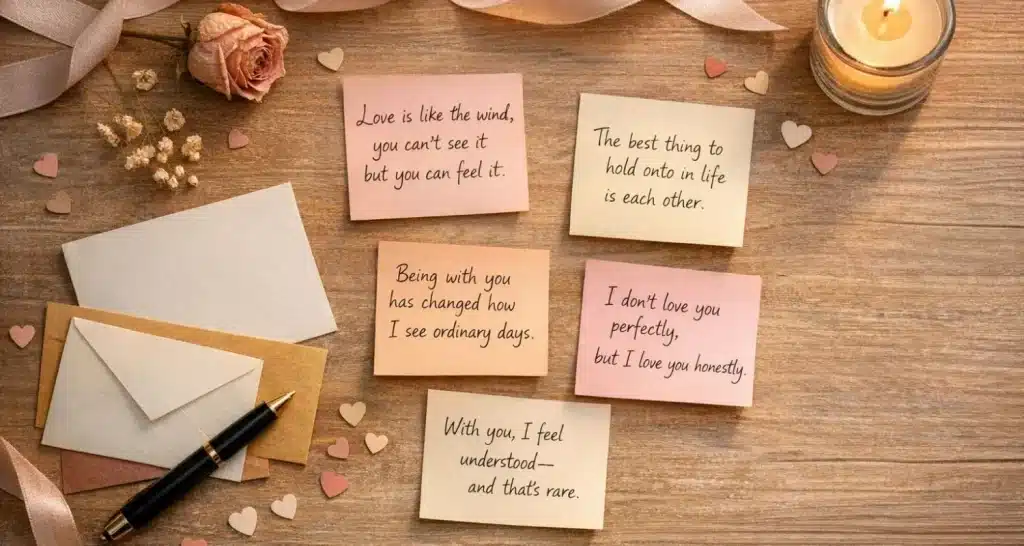 Love is like the wind,
you can't see it
but you can feel it.
The best thing to
hold onto in life
is each other.
Being with you
has changed how
I see ordinary days.
I don't love you
perfectly,
but I love you honestly.
With you, I feel
understood—
and that's rare.